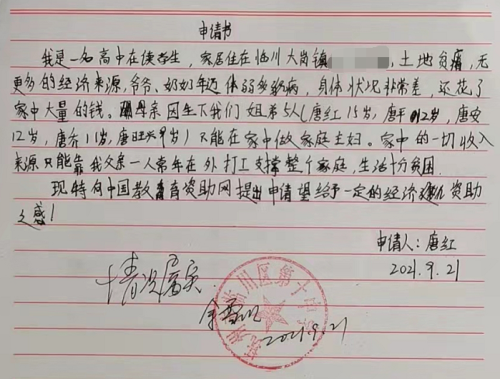 申请书
我是一名高中在读学生，家居住在临川大岗镇，土地贫瘠，无
更多的经济来源，爷爷、奶奶年迈体弱多疾病，身体状况非常差，还花了
家中大量的钱。母亲因生下我们姐弟5人（唐红15岁，唐平12岁，唐安
12岁，唐 11岁，唐旺 岁）只能在家中做家庭主妇。家中的一切收入
来源只能靠我父亲一人常年在外打工支撑整个家庭，生活十分贫困。
现特向中国教育资助网提出申请望给予一定的经济资助
之感！
申请人：唐红
2021.9.21
情况属实
2021.9.21
抚州市临川区第十中学